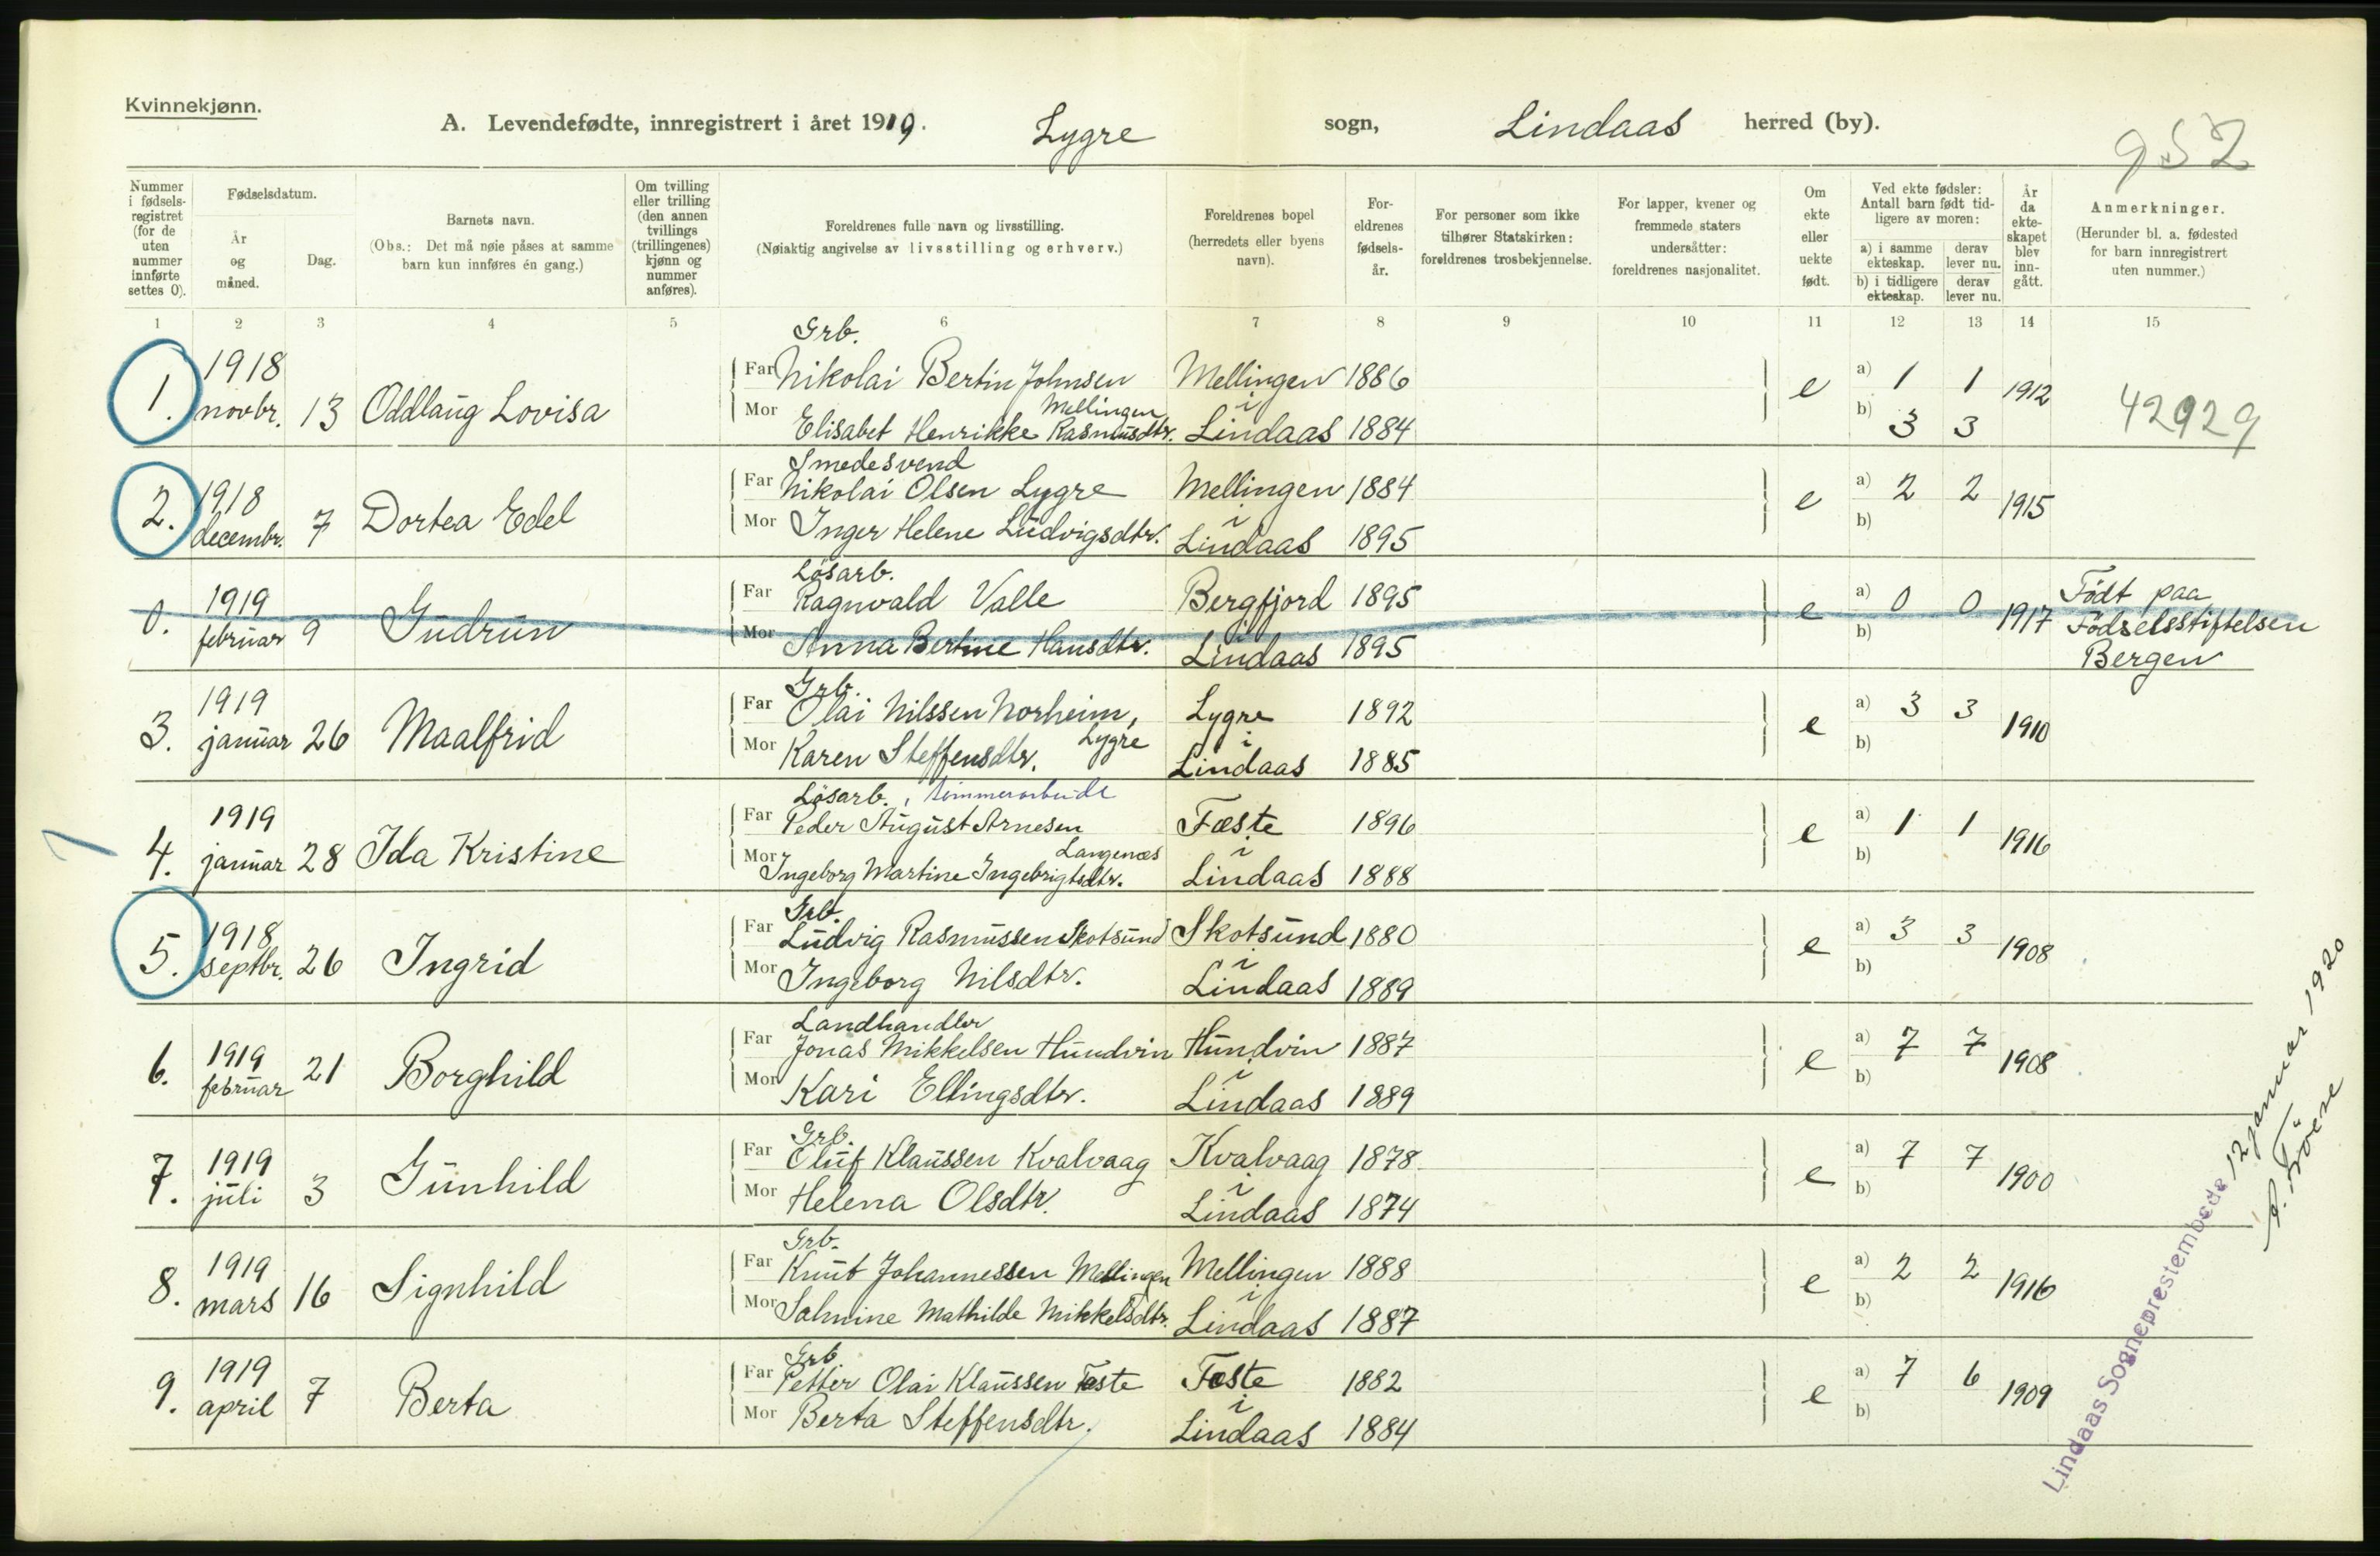 Kvinnekjønn.
A. Levendefødte, innregistrert i året 1919. Lygre sogn, Lindaas herred (by).
952
Nummer i fødsels- registret (for de uten nummer innførte settes 0).
Fødselsdatum.
År og måned.
Dag.
Barnets navn.
(Obs.: Det må nøie påses at samme barn kun innføres én gang.)
Om tvilling eller trilling (den annen tvillings (trillingenes) kjønn og nummer anføres).
Foreldrenes fulle navn og livsstilling.
(Nøiaktig angivelse av livsstilling og erhverv.)
Foreldrenes bopel (herredets eller byens navn).
For- eldrenes fødsels- år.
For personer som ikke tilhører Statskirken: foreldrenes trosbekjennelse.
For lapper, kvener og fremmede staters undersåtter: foreldrenes nasjonalitet.
Om ekte eller uekte født.
Ved ekte fødsler: Antall barn født tid- ligere av moren:
a) i samme ekteskap. derav lever nu.
b) i tidligere ekteskap. derav lever nu.
År da ekte- skapet blev inn- gått.
Anmerkninger.
(Herunder bl. a. fødested for barn innregistrert uten nummer.)
1 2 3 4 5 6 7 8 9 10 11 12 13 14 15
Grb.
1. 1918 novbr. 13 Oddlaug Lovisa
Far Nikolai Bertin Johnsen Mellingen Mellingen 1886
Mor Elisabet Henrikke Rasmusdtr. i Lindaas 1884
e a) 1 1 b) 3 3 1912 42929
Smedesvend
2. 1918 decembr. 7 Dortea Edel
Far Nikolai Olsen Lygre Mellingen 1884
Mor Inger Helene Ludvigsdtr. i Lindaas 1895
e a) 2 2 b) 1915
Lösarb.
0. 1919 februar 9 Gudrun
Far Ragnvald Valle Bergfjord 1895
Mor Anna Bertine Hansdtr. i Lindaas 1895
e a) 0 0 b) 1917 Födt paa Födselsstiftelsen Bergen
Grb.
3. 1919 januar 26 Maalfrid
Far Olai Nilssen Norheim, Lygre Lygre 1892
Mor Karen Steffensdtr. i Lindaas 1885
e a) 3 3 b) 1910
Lösarb.,
4. 1919 januar 28 Ida Kristine
Far Peder August Arnesen Langenæs Fæste 1896
Mor Ingeborg Martine Ingebrigtsdtr. i Lindaas 1888
e a) 1 1 b) 1916
Grb.
5. 1918 septbr. 26 Ingrid
Far Ludvig Rasmussen Skotsund Skotsund 1880
Mor Ingeborg Nilsdtr. i Lindaas 1889
e a) 3 3 b) 1908
Landhandler
6. 1919 februar 21 Borghild
Far Jonas Mikkelsen Hundvin Hundvin 1887
Mor Kari Ellingsdtr. i Lindaas 1889
e a) 7 7 b) 1908
Grb.
7. 1919 juli 3 Gunhild
Far Eluf Klaussen Kvalvaag Kvalvaag 1878
Mor Helena Olsdtr. i Lindaas 1874
e a) 7 7 b) 1900
Grb.
8. 1919 mars 16 Signhild
Far Knut Johannessen Mellingen Mellingen 1888
Mor Salmine Mathilde Mikkelsdtr. i Lindaas 1887
e a) 2 2 b) 1916
Grb.
9. 1919 april 7 Berta
Far Petter Olai Klaussen Fæste Fæste 1882
Mor Berta Steffensdtr. i Lindaas 1884
e a) 7 6 b) 1909
Lindaas Sogneprestembede 12 januar 1920